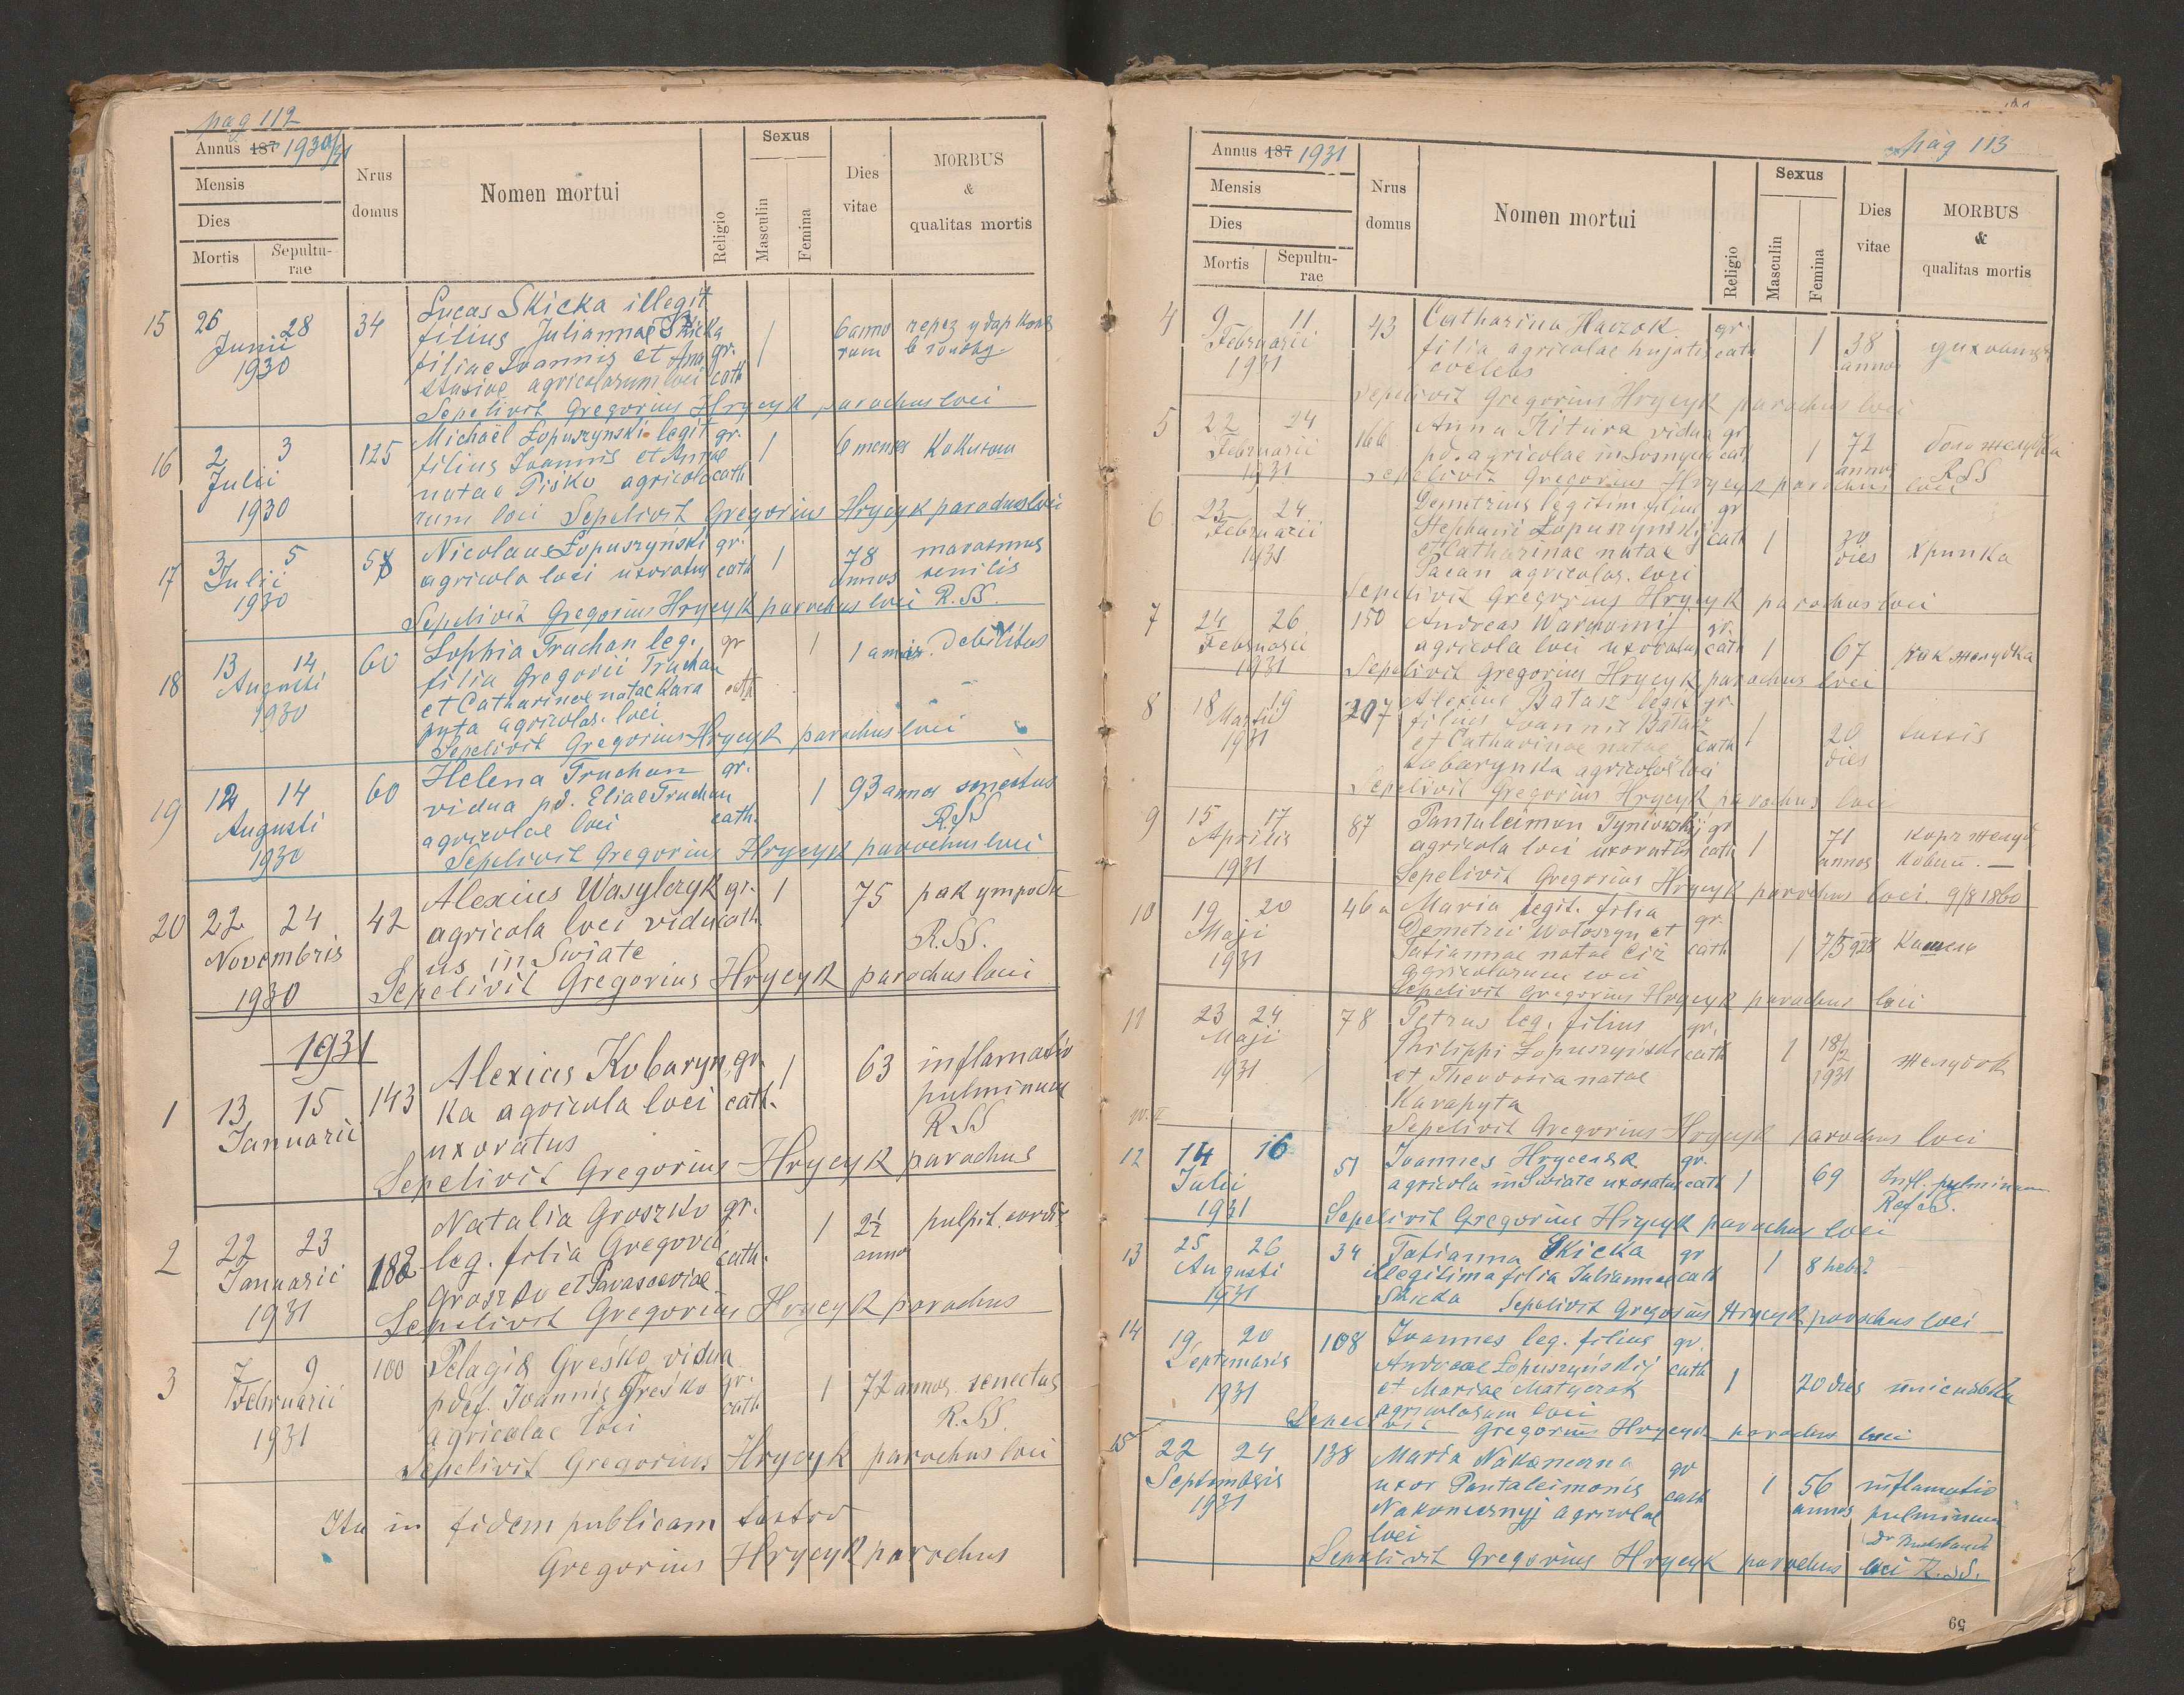 pag 112
Annus 187 1930/31
Mensis
Dies
Mortis
Sepulturae
Nrus domus
Nomen mortui
Religio
Sexus
Masculin
Femina
Dies vitae
MORBUS & qualitas mortis
15 26 28 Junii 1930 34
Lucas Skicka illegit
filius Juliannae Skicka
filiae Joannis et Ana gr.
stasiae agricolarum loci cath
1 6 anno rum
Sepelivit Gregorius Hrycyk parochus loci
16 2 3 Julii 1930 125
Michaël Łopuszynski legit gr.
filius Joannis et Annae
natae Pisko agricola cath
1 6 menses
rum loci Sepelivit Gregorius Hrycyk parochus loci
17 3 5 Julii 1930 58
Nicolaus Łopuszyński gr.
agricola loci uxoratus cath
1 78 annos marasmus senilis
Sepelivit Gregorius Hrycyk parochus loci R.SS.
18 13 14 Augusti 1930 60
Sophia Truchan leg. gr
filia Gregorii Truchan
et Catharinae natae Kara cath
pyta agricolar. loci
1 Debilitas
Sepelivit Gregorius Hrycyk parochus loci
19 12 14 Augusti 1930 60
Helena Truchan gr.
vidua pd. Eliae Truchan
agricolae loci cath.
1 93 annos senectus
R.SS
Sepelivit Gregorius Hrycyk parochus loci
20 22 24 Novembris 1930 42
Alexius Wasylczyk gr.
agricola loci vidu cath
us in Swiate
1 75 рак
R.SS.
Sepelivit Gregorius Hrycyk parochus loci
1931
1 13 15 Januarii 143
Alexius Kobaryn gr.
ka agricola loci cath.
uxoratus
1 63 inflamatio
pulminum
R.SS
Sepelivit Gregorius Hrycyk parochus
2 22 23 Januarii 1931 182
Natalia Groszko gr.
leg. filia Gregorii cath.
Groszko et Parasceviae
1 2½ anno pulpit. cordis
Sepelivit Gregorius Hrycyk parochus
3 7 9 Februarii 1931 100
Pelagia Greśko vidua
pdef. Joannis Greśko gr.
agricolae loci cath
1 72 annos senectus
R.SS
Sepelivit Gregorius Hrycyk parochus loci
Ita in fidem publicam testor
Gregorius Hrycyk parochus
pag 113
Annus 187 1931
Mensis
Dies
Mortis
Sepulturae
Nrus domus
Nomen mortui
Religio
Sexus
Masculin
Femina
Dies vitae
MORBUS & qualitas mortis
4 9 11 Februarii 1931 43
Catharina gr.
filia agricolae hujatis cath
1 38 annos
Sepelivit Gregorius Hrycyk parochus loci
5 22 24 Februarii 1931 166
Anna Kitura vidua gr
pd. agricolae in cath
1 72 annos
R SS
Sepelivit Gregorius Hrycyk parochus loci
6 23 24 Februarii 1931
Demetrius legitim filius gr
Stephani Łopuszynskij cath
et Catharinae natae
agricolar. loci
1 dies хрипка
Sepelivit Gregorius Hrycyk parochus loci
7 24 26 Februarii 1931 150
Andreas gr.
agricola loci uxoratus cath
1 67 рак желудка
Sepelivit Gregorius Hrycyk parochus loci
8 18 19 Martii 1931 207
Alexius Batasz legit gr.
filius Joannis
et Catharinae natae cath
Kobarynka agricolar loci
1 20 dies tussis
Sepelivit Gregorius Hrycyk parochus loci
9 15 17 Aprilis 1931 87
Pantaleimon gr
agricola loci uxoratus cath
1 71 annos
Sepelivit Gregorius Hrycyk parochus loci. 9/8 1860
10 19 20 Maji 1931 46a
Maria legit. filia gr.
Demetrii Wołoszyn et
Tatiannae natae cath
agricolarum loci
1 7/5 928
Sepelivit Gregorius Hrycyk parochus loci
11 23 24 Maji 1931 78
Petrus leg. filius gr.
Philippi Łopuszyński cath
et Theodosia natae
Karapyta
1 18/2 1931 желудок
Sepelivit Gregorius Hrycyk parochus loci
12 14 16 Julii 1931 51
Joannes gr.
agricola in Swiate uxoratus cath
1 69 Infl. pulminum
Sepelivit Gregorius Hrycyk parochus loci
13 25 26 Augusti 1931 34
Tatianna Skicka gr
illegitima filia Juliannae cath
Skicka
1 8 hebd
Sepelivit Gregorius Hrycyk parochus loci
14 19 20 Septembris 1931 108
Joannes leg. filius gr.
Andreae Łopuszyńskij cath
et Mariae
agricolarum loci
1 20 dies
Sepelivit Gregorius Hrycyk parochus loci
15 22 24 Septembris 1931 138
Maria gr
uxor Pantaleimonis cath
agricolae
loci
1 56 annos inflamatio
pulminum
Sepelivit Gregorius Hrycyk parochus loci R.SS.
59